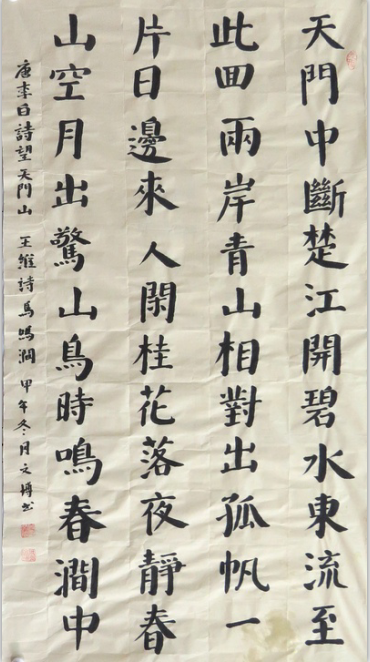 天門中斷楚江開碧水東流至
此回兩岸青山相對出孤帆一
片日邊來人閑桂花落夜靜春
山空月出驚山鳥時鳴春澗中
唐李白詩望天門山 王維詩鳥鳴澗 甲午冬月文博书